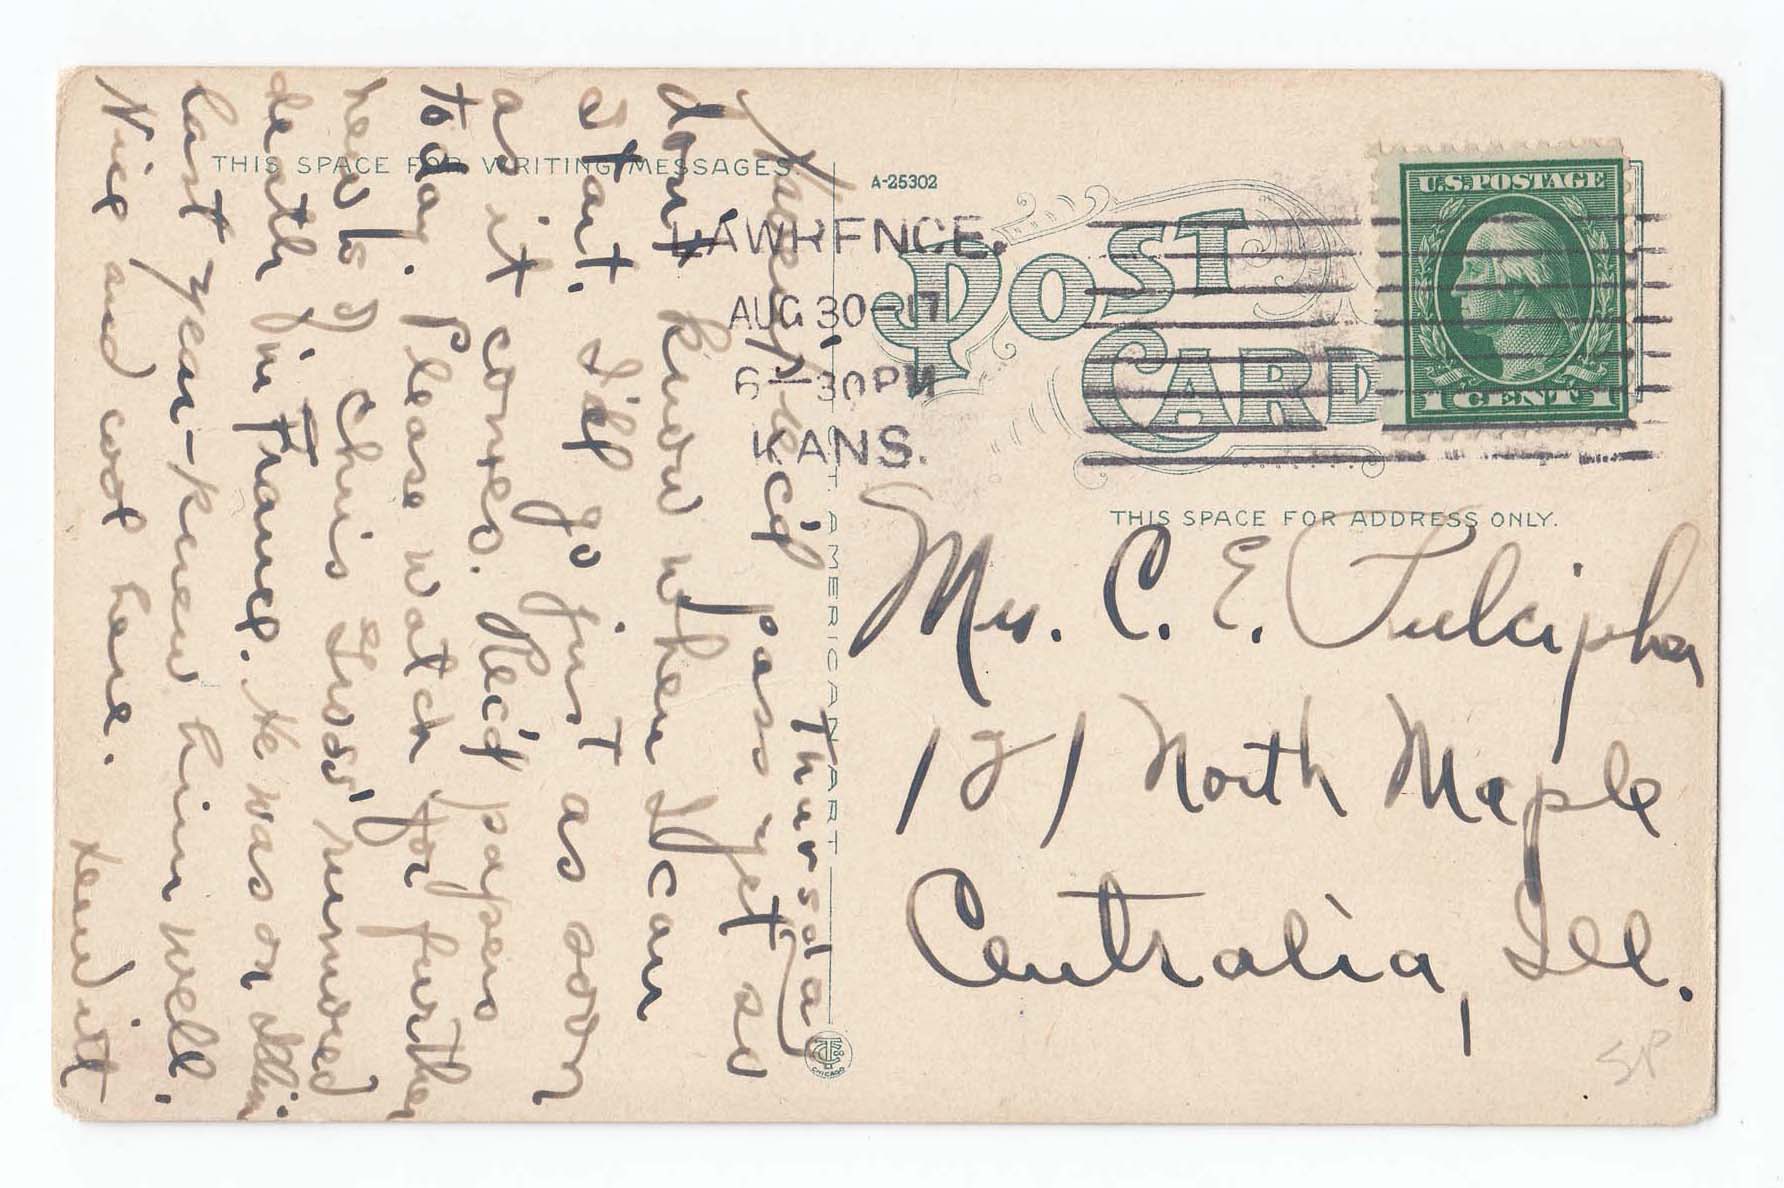 THIS SPACE FOR WRITING MESSAGES.
A-25302
POST
CARD
U.S. POSTAGE
1 CENT 1
LAWRENCE.
AUG 30-17
6-30PM
KANS.
THIS SPACE FOR ADDRESS ONLY.
Mrs. C. E. Fulcipher
121 North Maple
Centralia, Ill.
Thursday
Haven't rec'd pass yet so
don't know when I can
start. I'll go just as soon
as it comes. Rec'd papers
today. Please watch for further
news of Chris rumored
death in France. He was on
last year - knew him well.
Nice and cool here.
C.T. AMERICAN ART
CHICAGO
SP